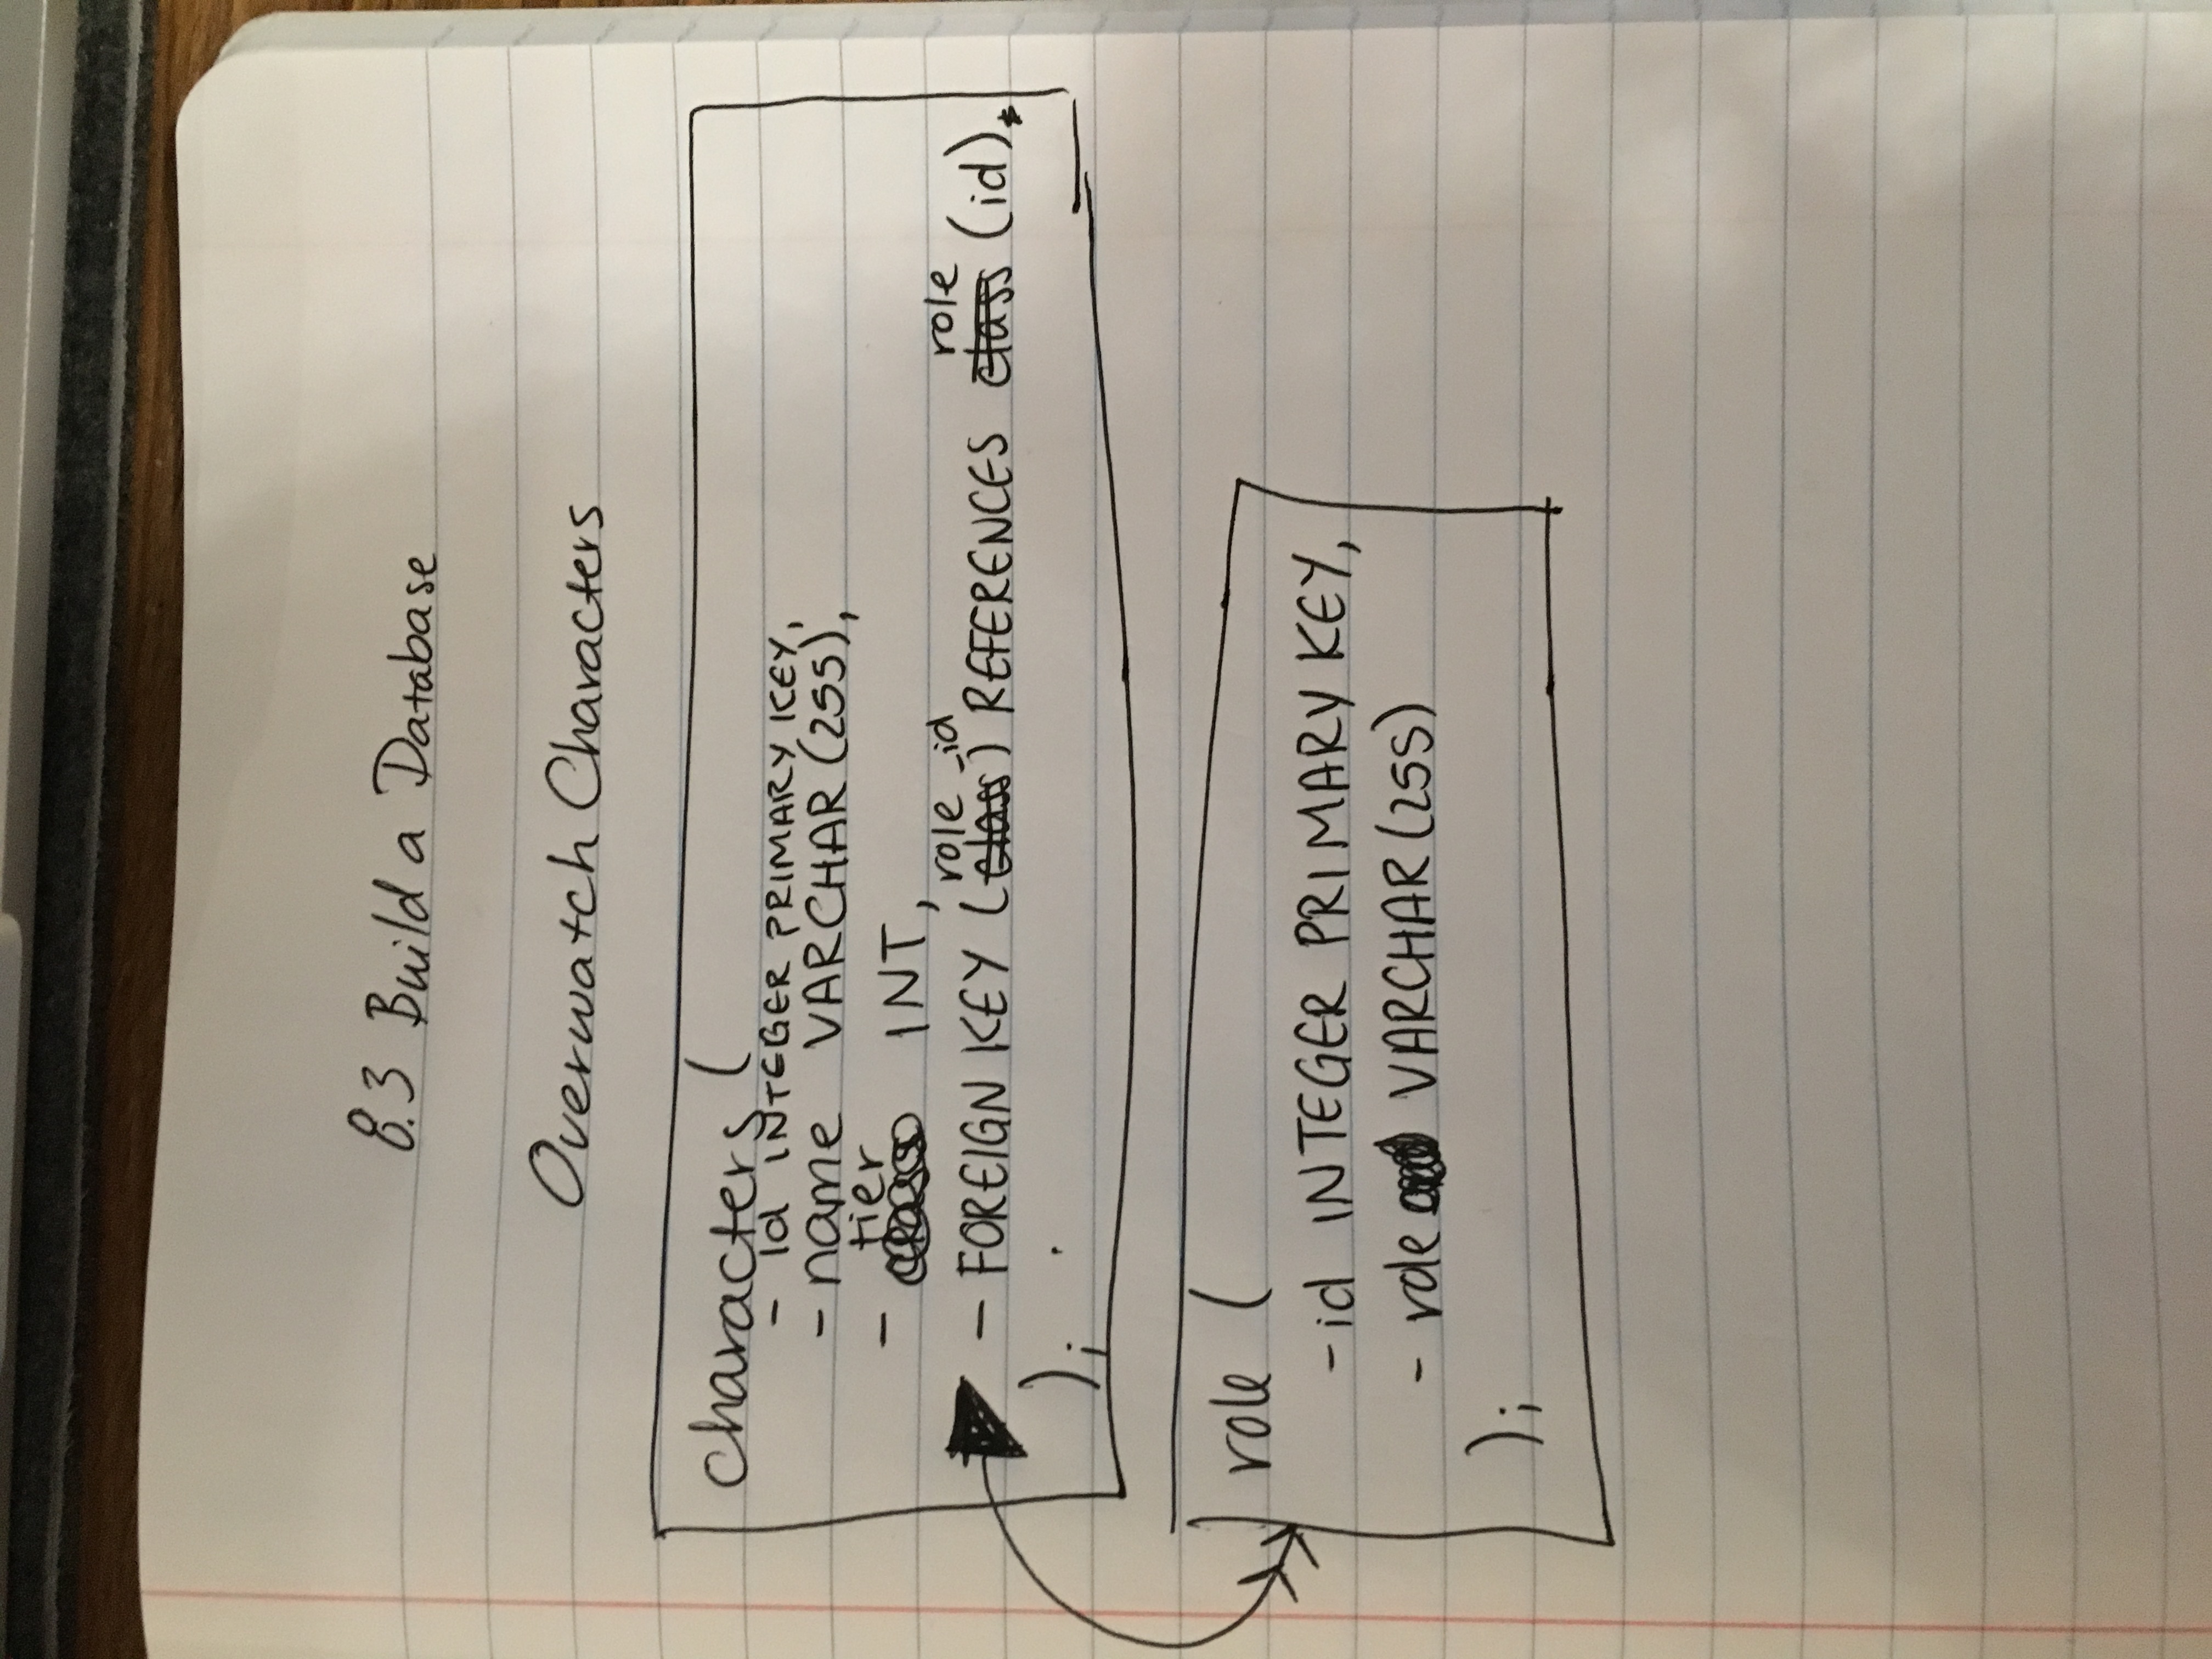 8.3 Build a Database
Overwatch Characters
characters (
- id INTEGER PRIMARY KEY,
- name VARCHAR (255),
- tier INT,
- FOREIGN KEY (role_id) REFERENCES role (id)
);
role (
- id INTEGER PRIMARY KEY,
- role VARCHAR (255)
);